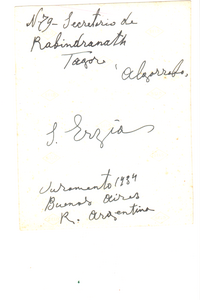 N79- Secretario de
Rabindranath
Tagore
"Algarrobo,
S. Erzia
Juramento 1934
Buenos Aires
R. Argentina